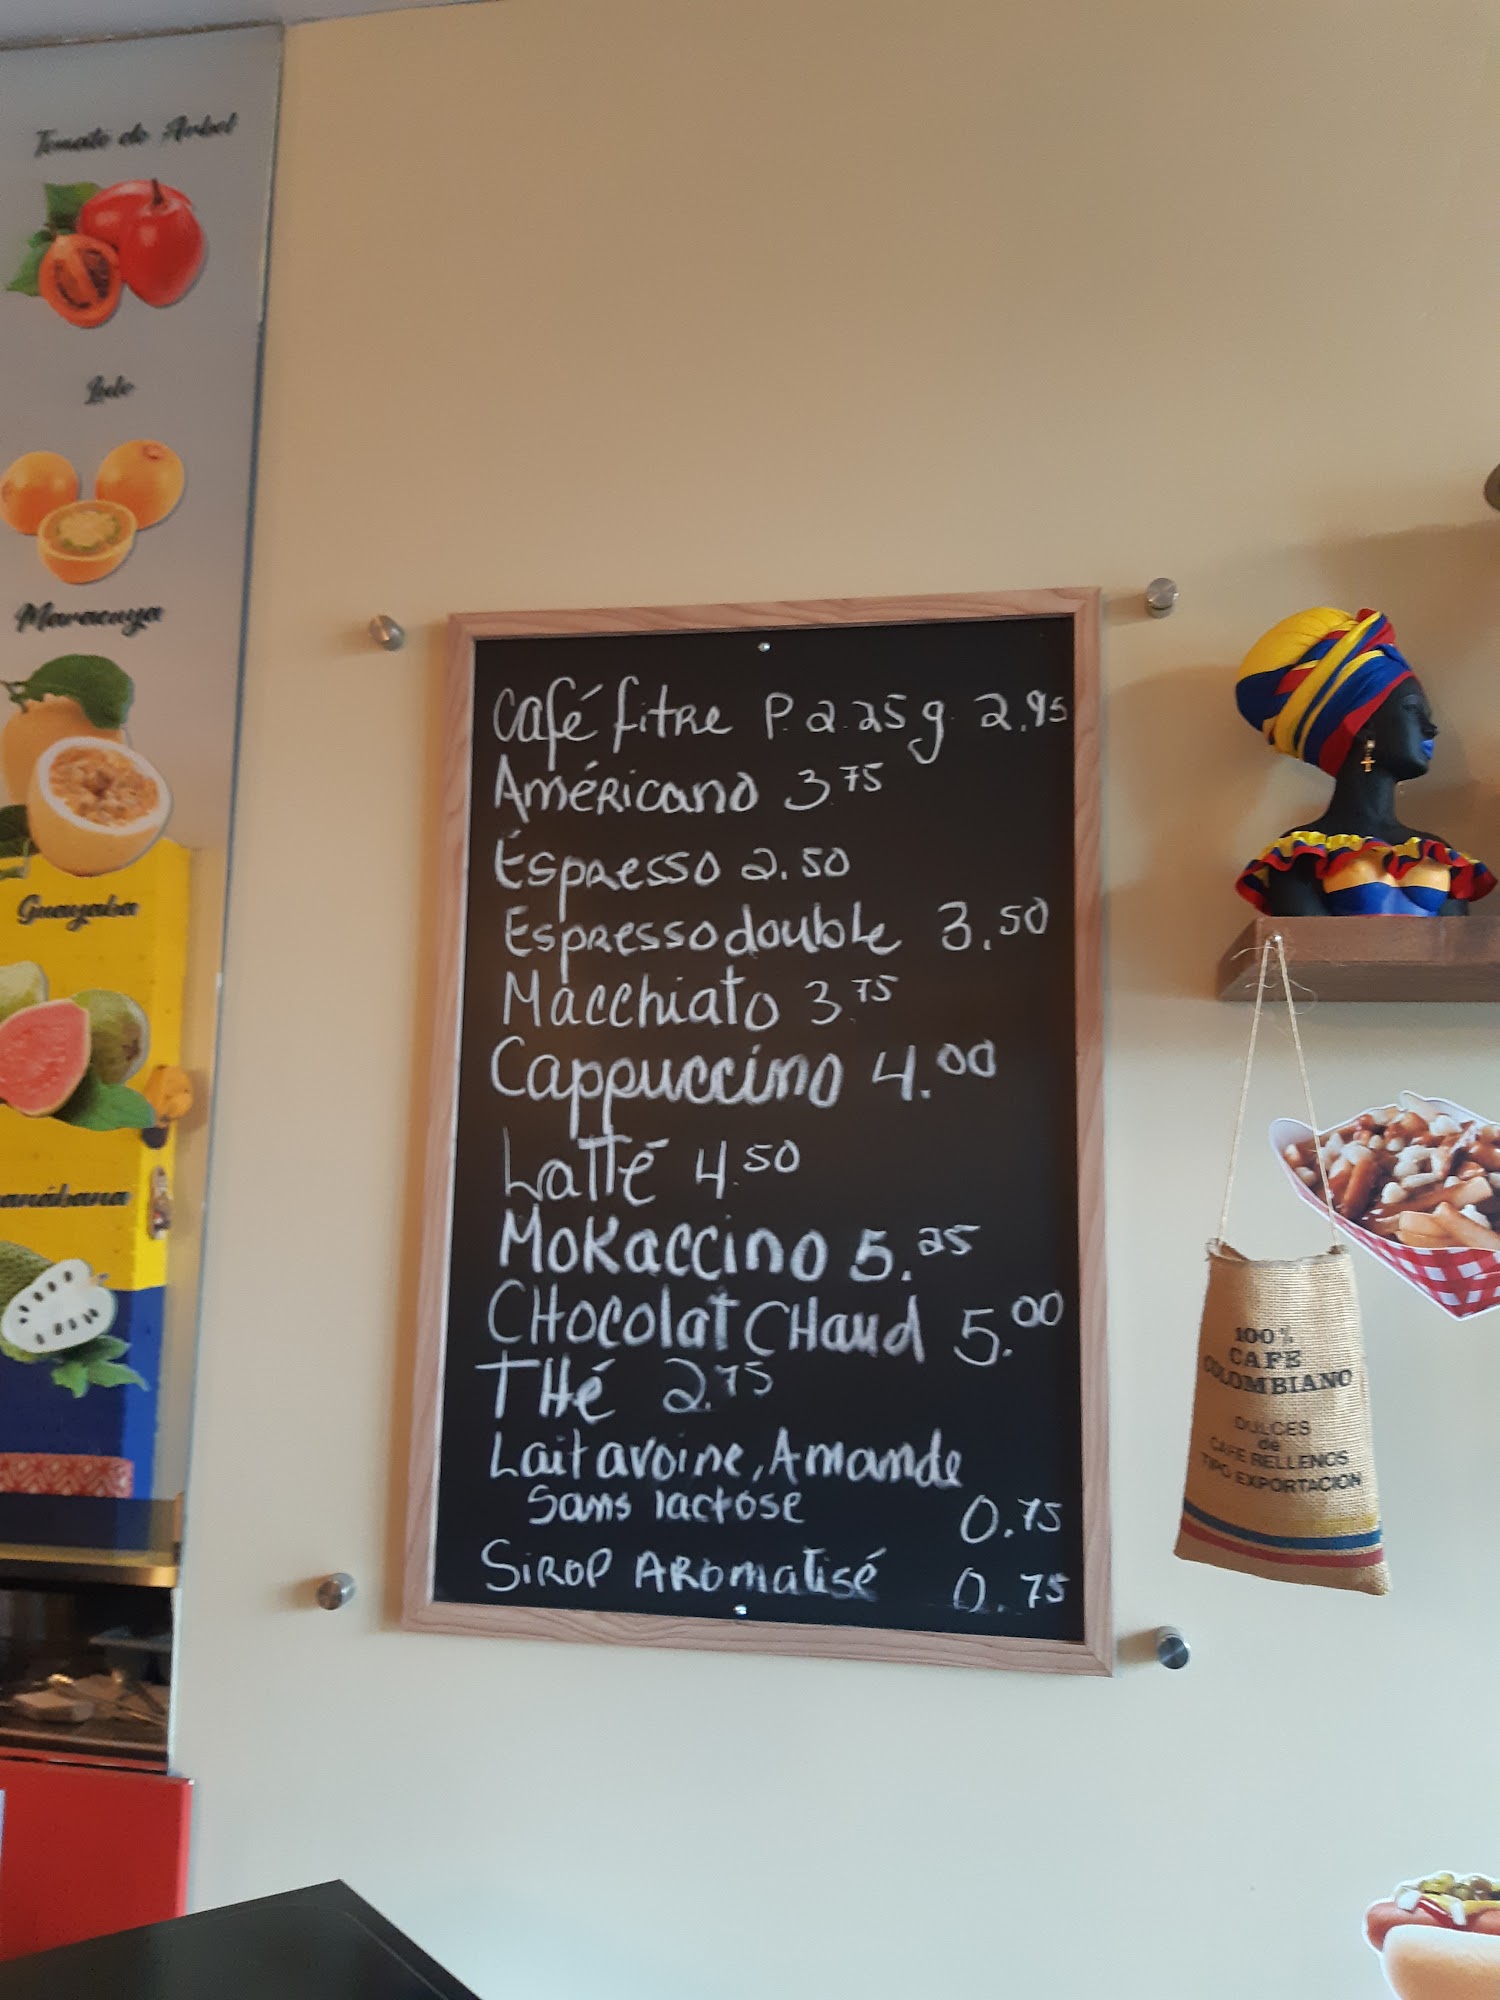 Tomate de Arbol
Lulo
Maracuya
Guayaba
anábana
Café fitre P. 2.25 g 2.95
Américano 3.75
Éspresso 2.50
Espresso double 3.50
Macchiato 3.75
Cappuccino 4.00
Latté 4.50
Mokaccino 5.25
CHocolat CHaud 5.00
THé 2.75
Lait avoine, Amande
Sans lactose 0.75
Sirop Aromatisé 0.75
100%
CAFE
COLOMBIANO
DULCES
de
CAFE RELLENOS
TIPO EXPORTACION